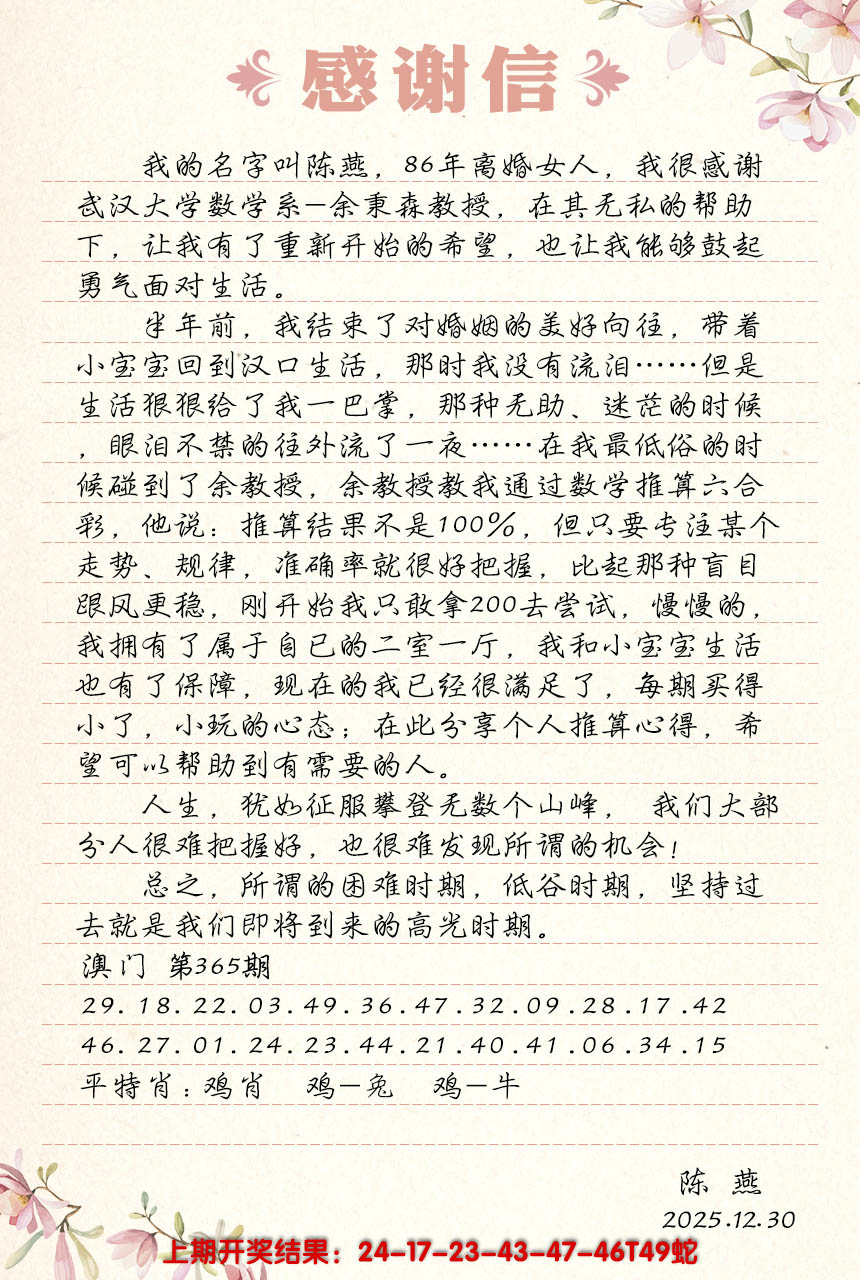 感谢信
我的名字叫陈燕，86年离婚女人，我很感谢
武汉大学数学系—余秉森教授，在其无私的帮助
下，让我有了重新开始的希望，也让我能够鼓起
勇气面对生活。
半年前，我结束了对婚姻的美好向往，带着
小宝宝回到汉口生活，那时我没有流泪……但是
生活狠狠给了我一巴掌，那种无助、迷茫的时候
，眼泪不禁的往外流了一夜……在我最低俗的时
候碰到了余教授，余教授教我通过数学推算六合
彩，他说：推算结果不是100%，但只要专注某个
走势、规律，准确率就很好把握，比起那种盲目
跟风更稳，刚开始我只敢拿200去尝试，慢慢的，
我拥有了属于自已的二室一厅，我和小宝宝生活
也有了保障，现在的我已经很满足了，每期买得
小了，小玩的心态；在此分享个人推算心得，希
望可以帮助到有需要的人。
人生，犹如征服攀登无数个山峰， 我们大部
分人很难把握好，也很难发现所谓的机会！
总之，所谓的困难时期，低谷时期，坚持过
去就是我们即将到来的高光时期。
澳门 第365期
29.18.22.03.49.36.47.32.09.28.17.42
46.27.01.24.23.44.21.40.41.06.34.15
平特肖：鸡肖 鸡—兔 鸡—牛
陈 燕
2025.12.30
上期开奖结果：24-17-23-43-47-46T49蛇